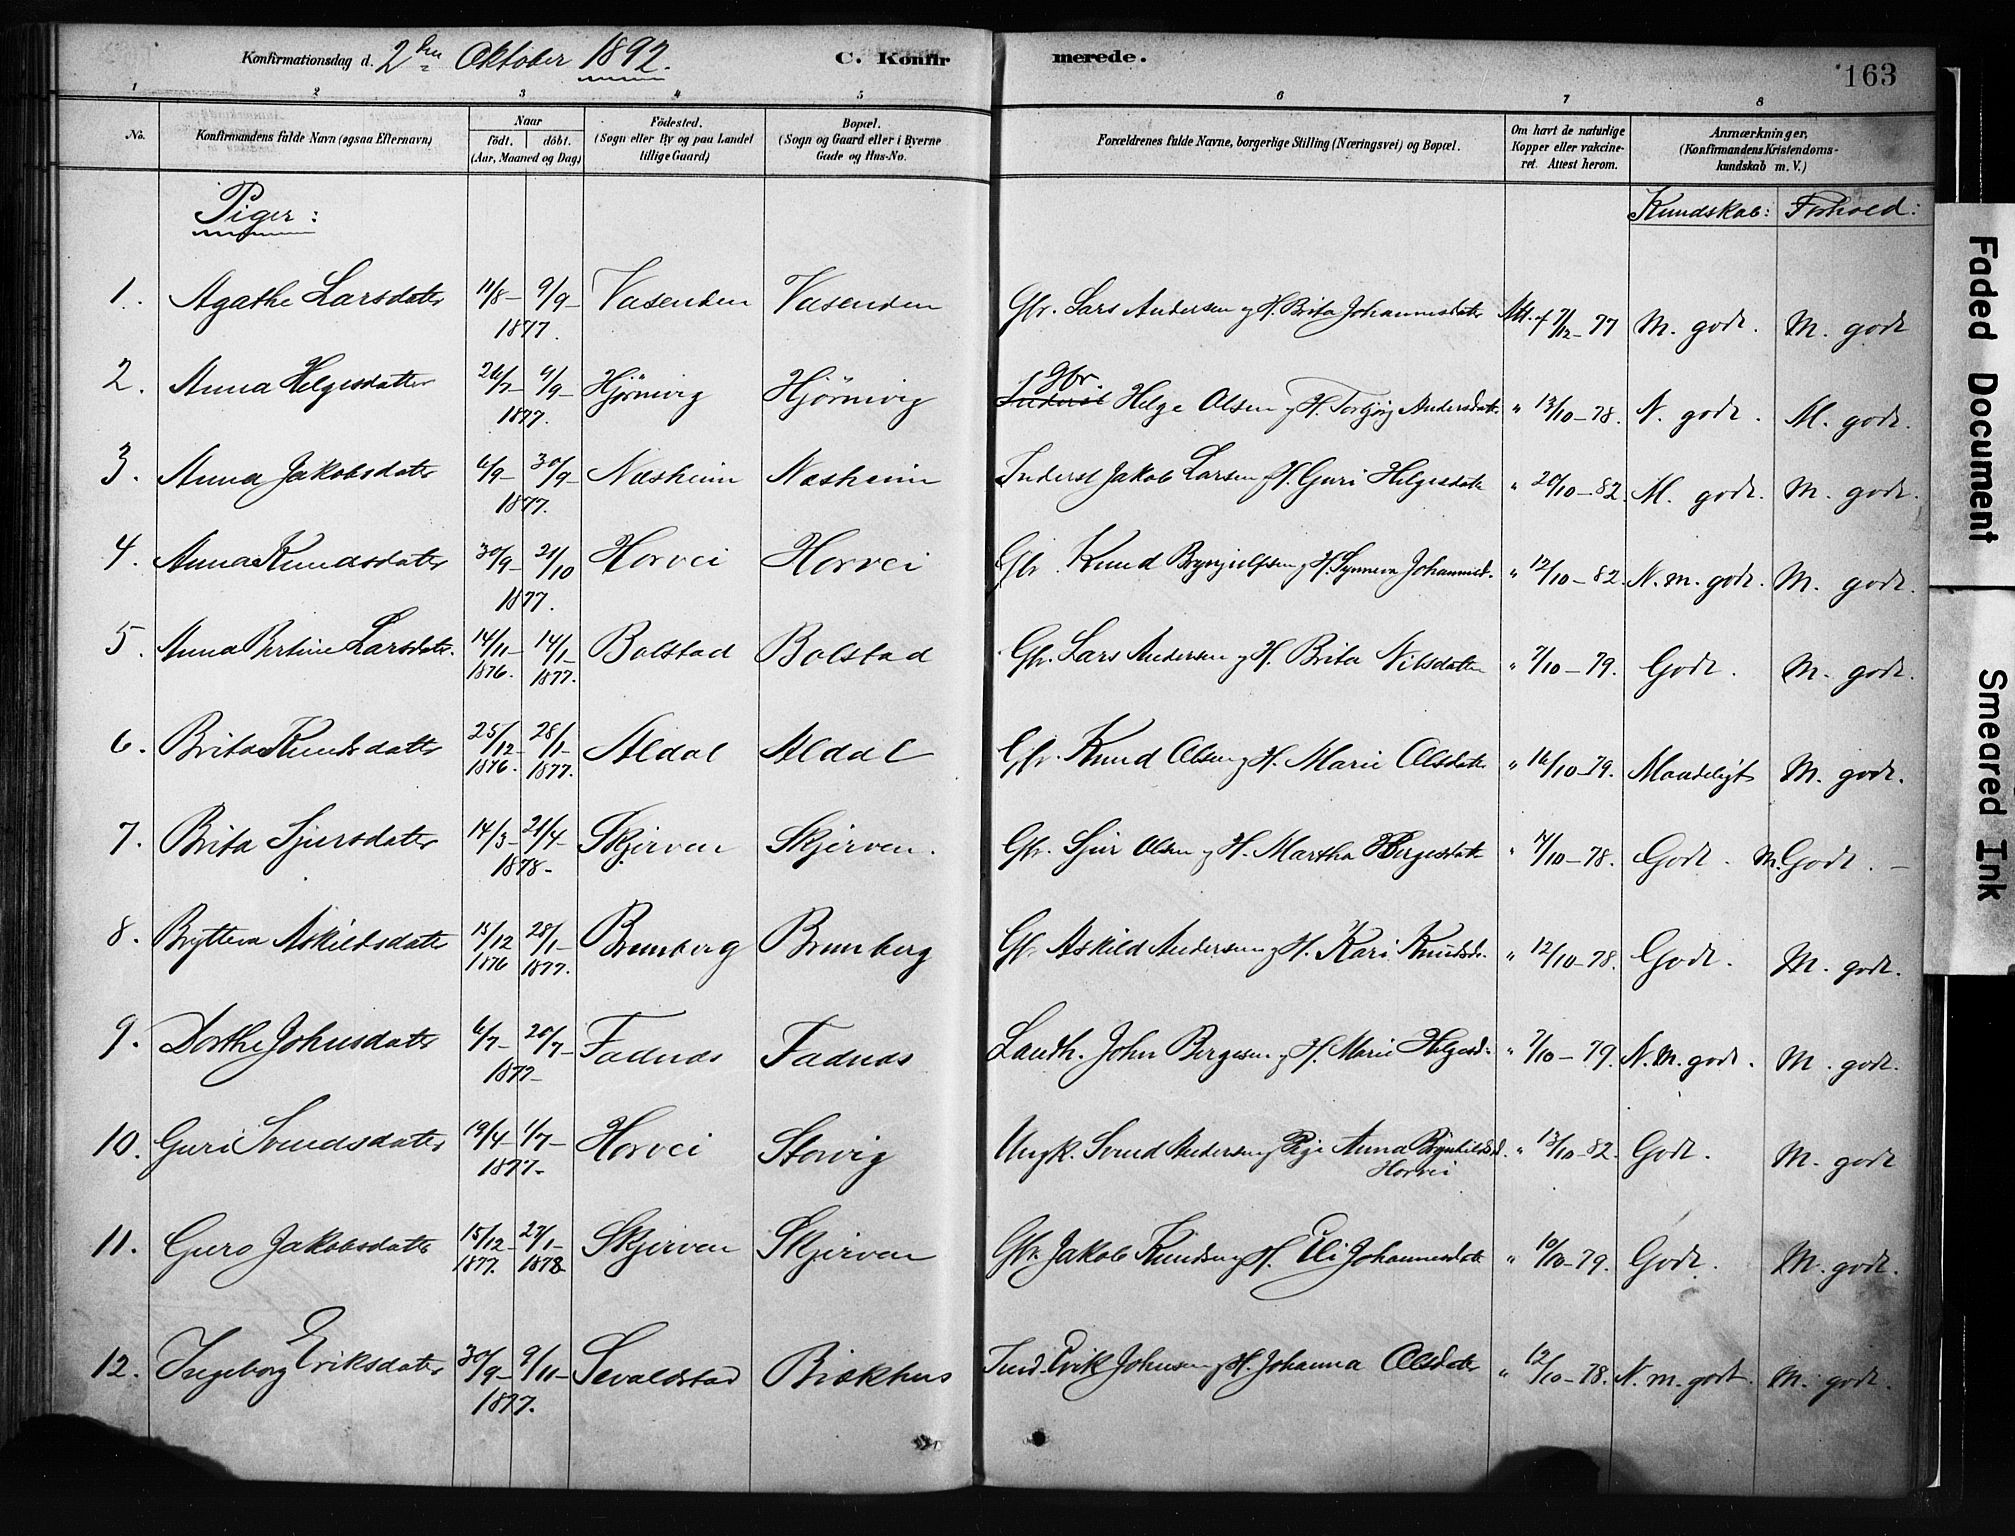 Konfirmationsdag d. 2den Oktober 1892. C. Konfirmerede. 163
1 2 3 4 5 6 7 8
No. Konfirmandens fulde Navn (ogsaa Efternavn) Naar födt. döbt. (Aar, Maaned og Dag) Födested. (Sogn eller By og paa Landet tillige Gaard) Bopæl. (Sogn og Gaard eller i Byerne Gade og Hus-No. Forældrenes fulde Navne, borgerlige Stilling (Næringsvei) og Bopæl. Om havt de naturlige Kopper eller vakcineret. Attest herom. Anmærkninger, (Konfirmandens Kristendomskundskab m. V.)
Piger: Kundskab: Forhold:
1. Agathe Larsdatter 11/8- 9/9- 1877. Vasenden Vasenden Gbr. Lars Andersen og H. Brita Johannesdatter Att. f 7/12-77 M. godt. M. godt
2. Anna Helgesdatter 26/7- 9/9- 1877. Hjørnivig Hjørnivig Inderst Gbr. Helge Olsen og H. Torbjørg Andersdatter " 13/10-78. N. godt. M. godt.
3. Anna Jakobsdatter 6/9- 30/9- 1877. Næsheim Næsheim Inderst Jakob Larsen og H. Guri Helgesdatter " 20/10-82. M. godt. M. godt.
4. Anna Knudsdatter 30/9- 21/10 1877. Horvei Horvei Gbr. Knud Brynjulfsen og H. Synneva Johannesd. " 12/10-82. N. m. godt. M. godt.
5. Anna Bertine Larsdatter. 14/11- 1876. 14/1- 1877. Bolstad Bolstad Gbr. Lars Andersen og H. Brita Nilsdatter " 7/10-79. Godt. M. godt.
6. Brita Knudsdatter 25/12- 1876. 28/1- 1877. Aldal Aldal Gbr. Knud Olsen og H. Marie Olsdatter " 16/10-79. Maadeligt M. godt.
7. Brita Sjursdatter 14/3- 21/4- 1878- Skjerven Skjerven. Gbr. Sjur Olsen og H. Martha Bergesdatter " 7/10-78. Godt. M. Godt.-
8. Brytteva Askildsdatter 15/12 1876 28/1- 1877. Brunberg Brunberg Gbr. Askild Andersen og H. Kari Knudsdr. " 12/10-78. Godt. M. godt.
9. Dorthe Johnsdatter 6/7- 20/7- 1877- Fadnæs Fadnæs Landh. John Bergesen og H. Marie Helgesd. " 7/10-79. N. M. godt. M. godt.
10. Guri Svendsdatter 19/4- 1/7- 1877. Horvei Storvig Ungk. Svend Andersen og Pige Anna Brynhildsd. Horvei " 13/10-82. Godt. M. godt
11. Guro Jakobsdatter 15/12- 1877. 27/1- 1878 Skjerven Skjerven Gbr. Jakob Knudsen og H. Eli Johannesdatter " 10/10-79. Godt. M. godt.
12. Ingeborg Eriksdatter 30/9- 9/11- 1877. Sevaldstad Birkhus Ind. Erik Johnsen og H. Johanna Olsdatter " 12/10-78. N. m. godt. M. godt.
Faded Document
Smeared Ink